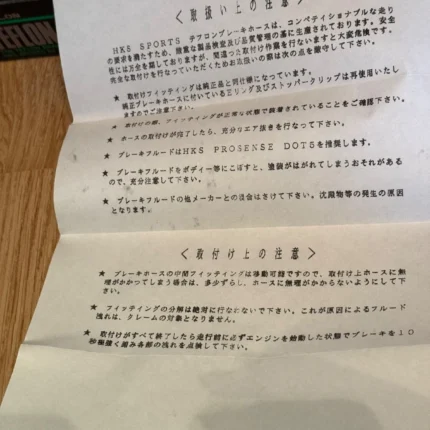 ＜取扱い上の注意＞
HKS SPORTS テフロンブレーキホースは、コンペティショナブルな走り
の要求を満たすため、厳重な製品検査及び品質管理の基に生産されております。安全
性には万全を期しておりますが、間違った取付け作業を行ないますと大変危険です。
完全な取付けを行なっていただくためお取扱いの際は次の点を厳守して下さい。
★ 取付けフィッティングは純正品と同仕様になっています。
純正ブレーキホースに付いているEリング及びストッパークリップは再使用いたし
ますのでご注意下さい。
★ 取付けの際、フィッティングが正常な状態で装着されていることをご確認下さい。
★ ホースの取付けが完了したら、充分なエア抜きを行なって下さい。
★ ブレーキフルードはHKS PROSENSE DOT5を推奨します。
★ ブレーキフルードをボディー等にこぼすと、塗装がはがれてしまうおそれがある
ので、充分注意して下さい。
★ ブレーキフルードの他メーカーとの混合はさけて下さい。沈澱物等の発生の原因
となります。
＜取付け上の注意＞
★ ブレーキホースの中間フィッティングは移動可能ですので、取付け上ホースに無
理がかかってしまう場合は、多少ずらし、ホースに無理がかからないようにして下
さい。
★ フィッティングの分解は絶対に行なわないで下さい。これが原因によるフルード
洩れは、クレームの対象となりません。
★ 取付けがすべて終了したら走行前に必ずエンジンを始動した状態でブレーキを10
秒程強く踏み各部の洩れを点検して下さい。